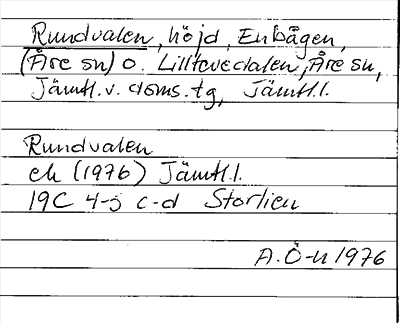 Rundvalen, höjd, Enbågen,
(Åre sn) o. Lilltevedalen, Åre sn,
Jämtl. v. doms. tg, Jämtl. l.
Rundvalen
ek (1976) Jämtl. l.
19C 4-5 c-d Storlien
A. Ö-n 1976